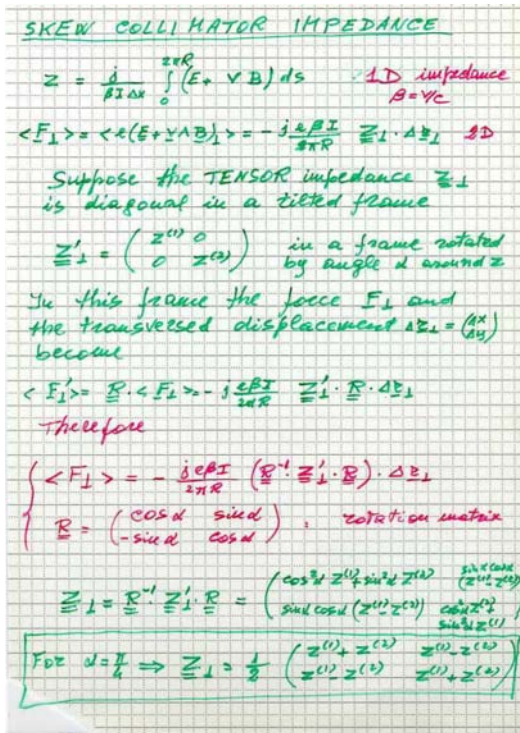 SKEW COLLIMATOR IMPEDANCE
Z = j/(βIΔx) ∫₀^{2πR} (E + VB) ds   1D impedance
β = V/c
<F⊥> = <e(E+V∧B)⊥> = -j eβI/2πR Z⊥ · Δr⊥   2D
Suppose the TENSOR impedance Z⊥
is diagonal in a tilted frame
Z'⊥ = ( Z⁽¹⁾ 0 ; 0 Z⁽²⁾ )   in a frame rotated
by angle α around z
In this frame the force F⊥ and
the transversed displacement Δr⊥ = (Δx ; Δy)
become
<F'⊥> = R · <F⊥> = -j eβI/2πR Z'⊥ · R · Δr⊥
Therefore
<F⊥> = - jeβI/2πR (R⁻¹ · Z'⊥ · R) · Δr⊥
R = ( cosα sinα ; -sinα cosα ) : rotation matrix
Z⊥ = R⁻¹ · Z'⊥ · R = ( cos²α Z⁽¹⁾ + sin²α Z⁽²⁾   sinα cosα (Z⁽¹⁾-Z⁽²⁾) ; sinα cosα (Z⁽¹⁾-Z⁽²⁾)   cos²α Z⁽²⁾ + sin²α Z⁽¹⁾ )
For α = π/4 ⇒ Z⊥ = 1/2 ( Z⁽¹⁾+Z⁽²⁾   Z⁽¹⁾-Z⁽²⁾ ; Z⁽¹⁾-Z⁽²⁾   Z⁽¹⁾+Z⁽²⁾ )